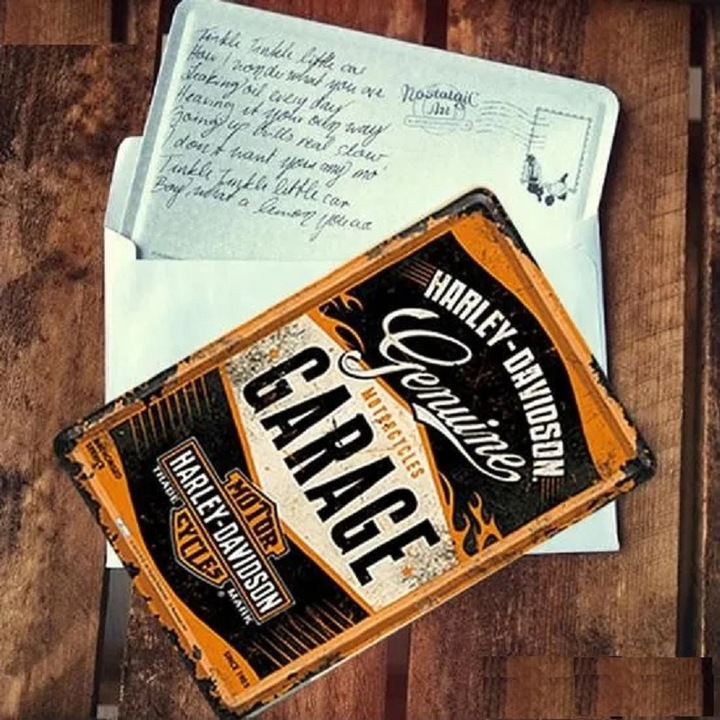 Tinkle Tinkle little car
How I wonder what you are
Leaking oil every day
Heaving it your own way
Going up hills real slow
don't want you any mo'
Tinkle Tinkle little car
Boy what a lemon you are
Nostalgic
Art
HARLEY-DAVIDSON
Genuine
MOTORCYCLES
GARAGE
MOTOR
HARLEY-DAVIDSON
CYCLES
TRADE MARK
®
SINCE 1903